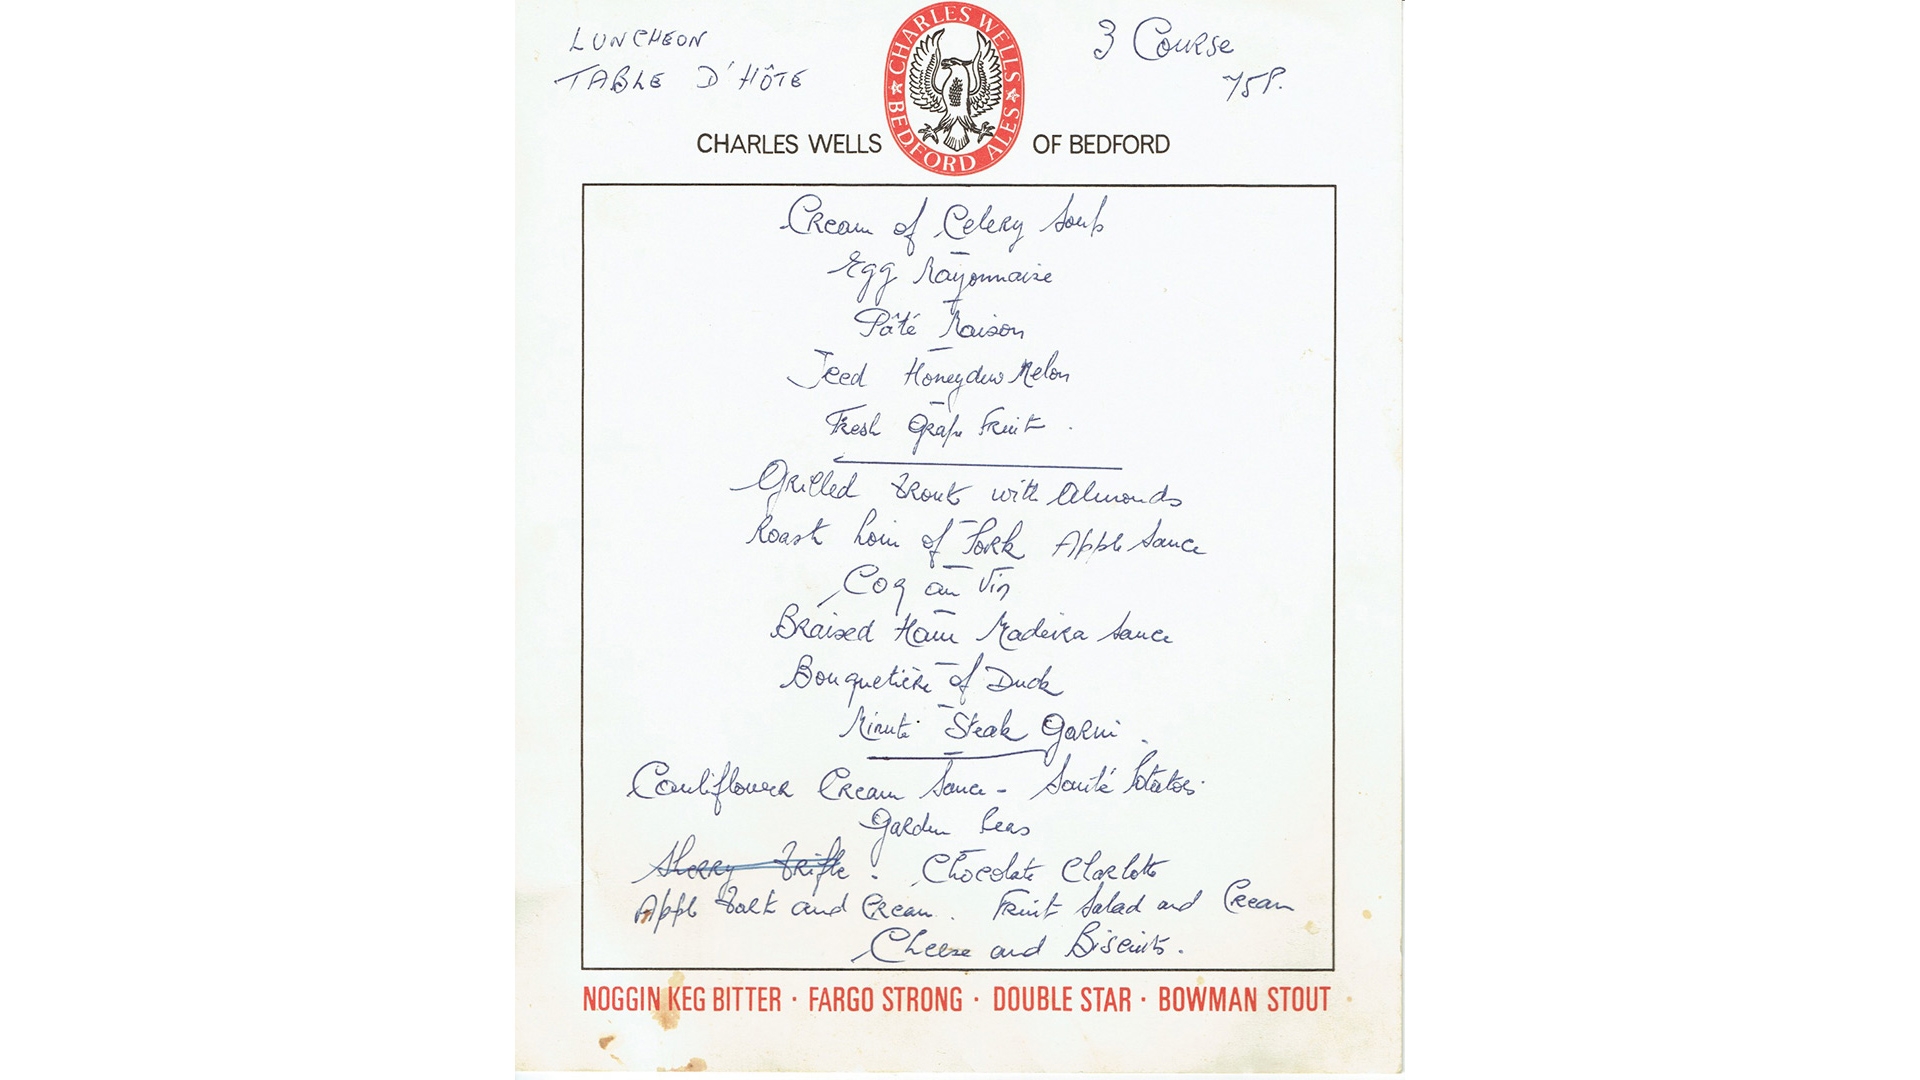 LUNCHEON
TABLE D'HÔTE
3 Course
75P.
CHARLES WELLS
BEDFORD ALES
CHARLES WELLS OF BEDFORD
Cream of Celery Soup
Egg Mayonnaise
Pâté Maison
Iced Honeydew Melon
Fresh Grape Fruit.
Grilled Trout with Almonds
Roast Loin of Pork Apple Sauce
Coq au Vin
Braised Ham Madeira Sauce
Bouquetière of Duck
Minute Steak Garni.
Cauliflower Cream Sauce - Sauté Potatoes.
Garden Peas
Sherry Trifle. Chocolate Charlotte
Apple Tart and Cream. Fruit Salad and Cream
Cheese and Biscuits.
NOGGIN KEG BITTER · FARGO STRONG · DOUBLE STAR · BOWMAN STOUT